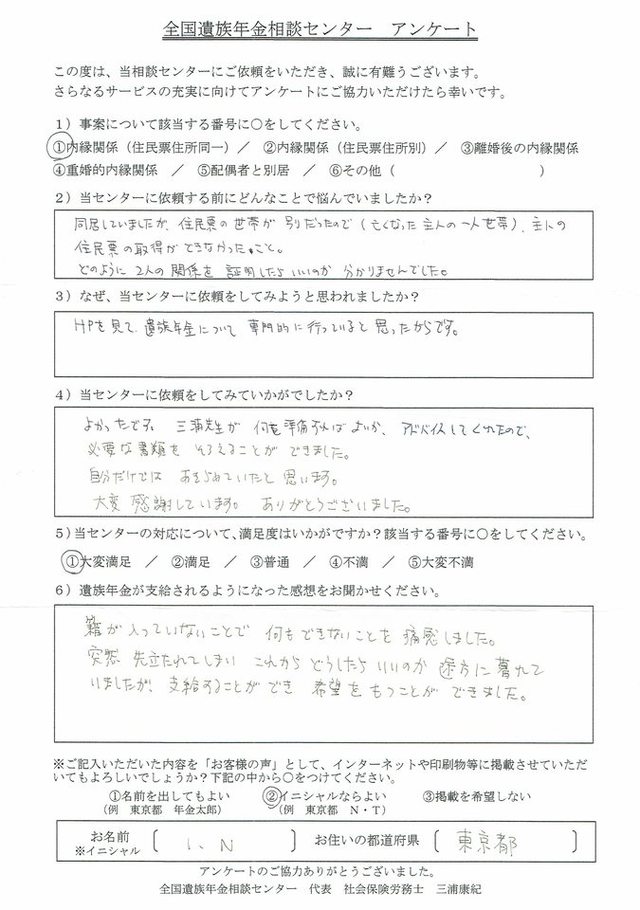 全国遺族年金相談センター　アンケート
この度は、当相談センターにご依頼をいただき、誠に有難うございます。
さらなるサービスの充実に向けてアンケートにご協力いただけたら幸いです。
1）事案について該当する番号に○をしてください。
①内縁関係（住民票住所同一）／　②内縁関係（住民票住所別）／　③離婚後の内縁関係
④重婚的内縁関係　／　⑤配偶者と別居　／　⑥その他（　　　　　　　　　　）
2）当センターに依頼する前にどんなことで悩んでいましたか？
同居していましたが、住民票の世帯が別だったので（亡くなった主人の一人世帯）、主人の
住民票の取得ができなかったこと。
どのように2人の関係を証明したらいいのか分かりませんでした。
3）なぜ、当センターに依頼をしてみようと思われましたか？
HPを見て、遺族年金について専門的に行っていると思ったからです。
4）当センターに依頼をしてみていかがでしたか？
よかったです。三浦先生が何を準備すればよいか、アドバイスしてくれたので、
必要な書類をそろえることができました。
自分だけではあきらめていたと思います。
大変感謝しています。ありがとうございました。
5）当センターの対応について、満足度はいかがですか？該当する番号に○をしてください。
①大変満足　／　②満足　／　③普通　／　④不満　／　⑤大変不満
6）遺族年金が支給されるようになった感想をお聞かせください。
籍が入っていないことで何もできないことを痛感しました。
突然先立たれてしまいこれからどうしたらいいのか途方に暮れて
いましたが、支給することができ希望をもつことができました。
※ご記入いただいた内容を「お客様の声」として、インターネットや印刷物等に掲載させていただ
いてもよろしいでしょうか？下記の中から○をつけてください。
①名前を出してもよい　　②イニシャルならよい　　③掲載を希望しない
（例　東京都　年金太郎）　（例　東京都　N・T）
お名前　〔　I、N　〕　お住いの都道府県　〔　東京都　〕
※イニシャル
アンケートのご協力ありがとうございました。
全国遺族年金相談センター　代表　社会保険労務士　三浦康紀